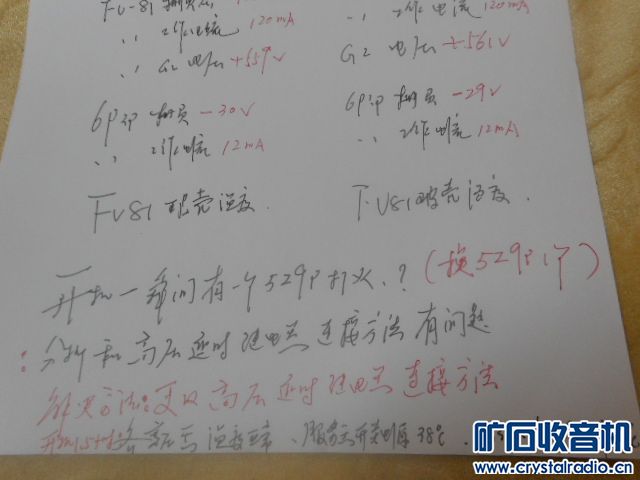 FU-81 栅负压 120mA
〃 工作电流 120mA
〃 G2 电压 +559V
G2 电压 +561V
6P3P 栅负 -30V
6P3P 栅负 -29V
〃 工作电流 12mA
〃 工作电流 12mA
FU81 玻壳温度.
FU81玻壳温度.
开机一瞬间有一个529P打火.？(换529P1个)
: 分析和高压延时继电器连接方法有问题
解决方法: 更改高压延时继电器连接方法
开机 高压后温度 38℃.
矿石收音机
www.crystalradio.cn